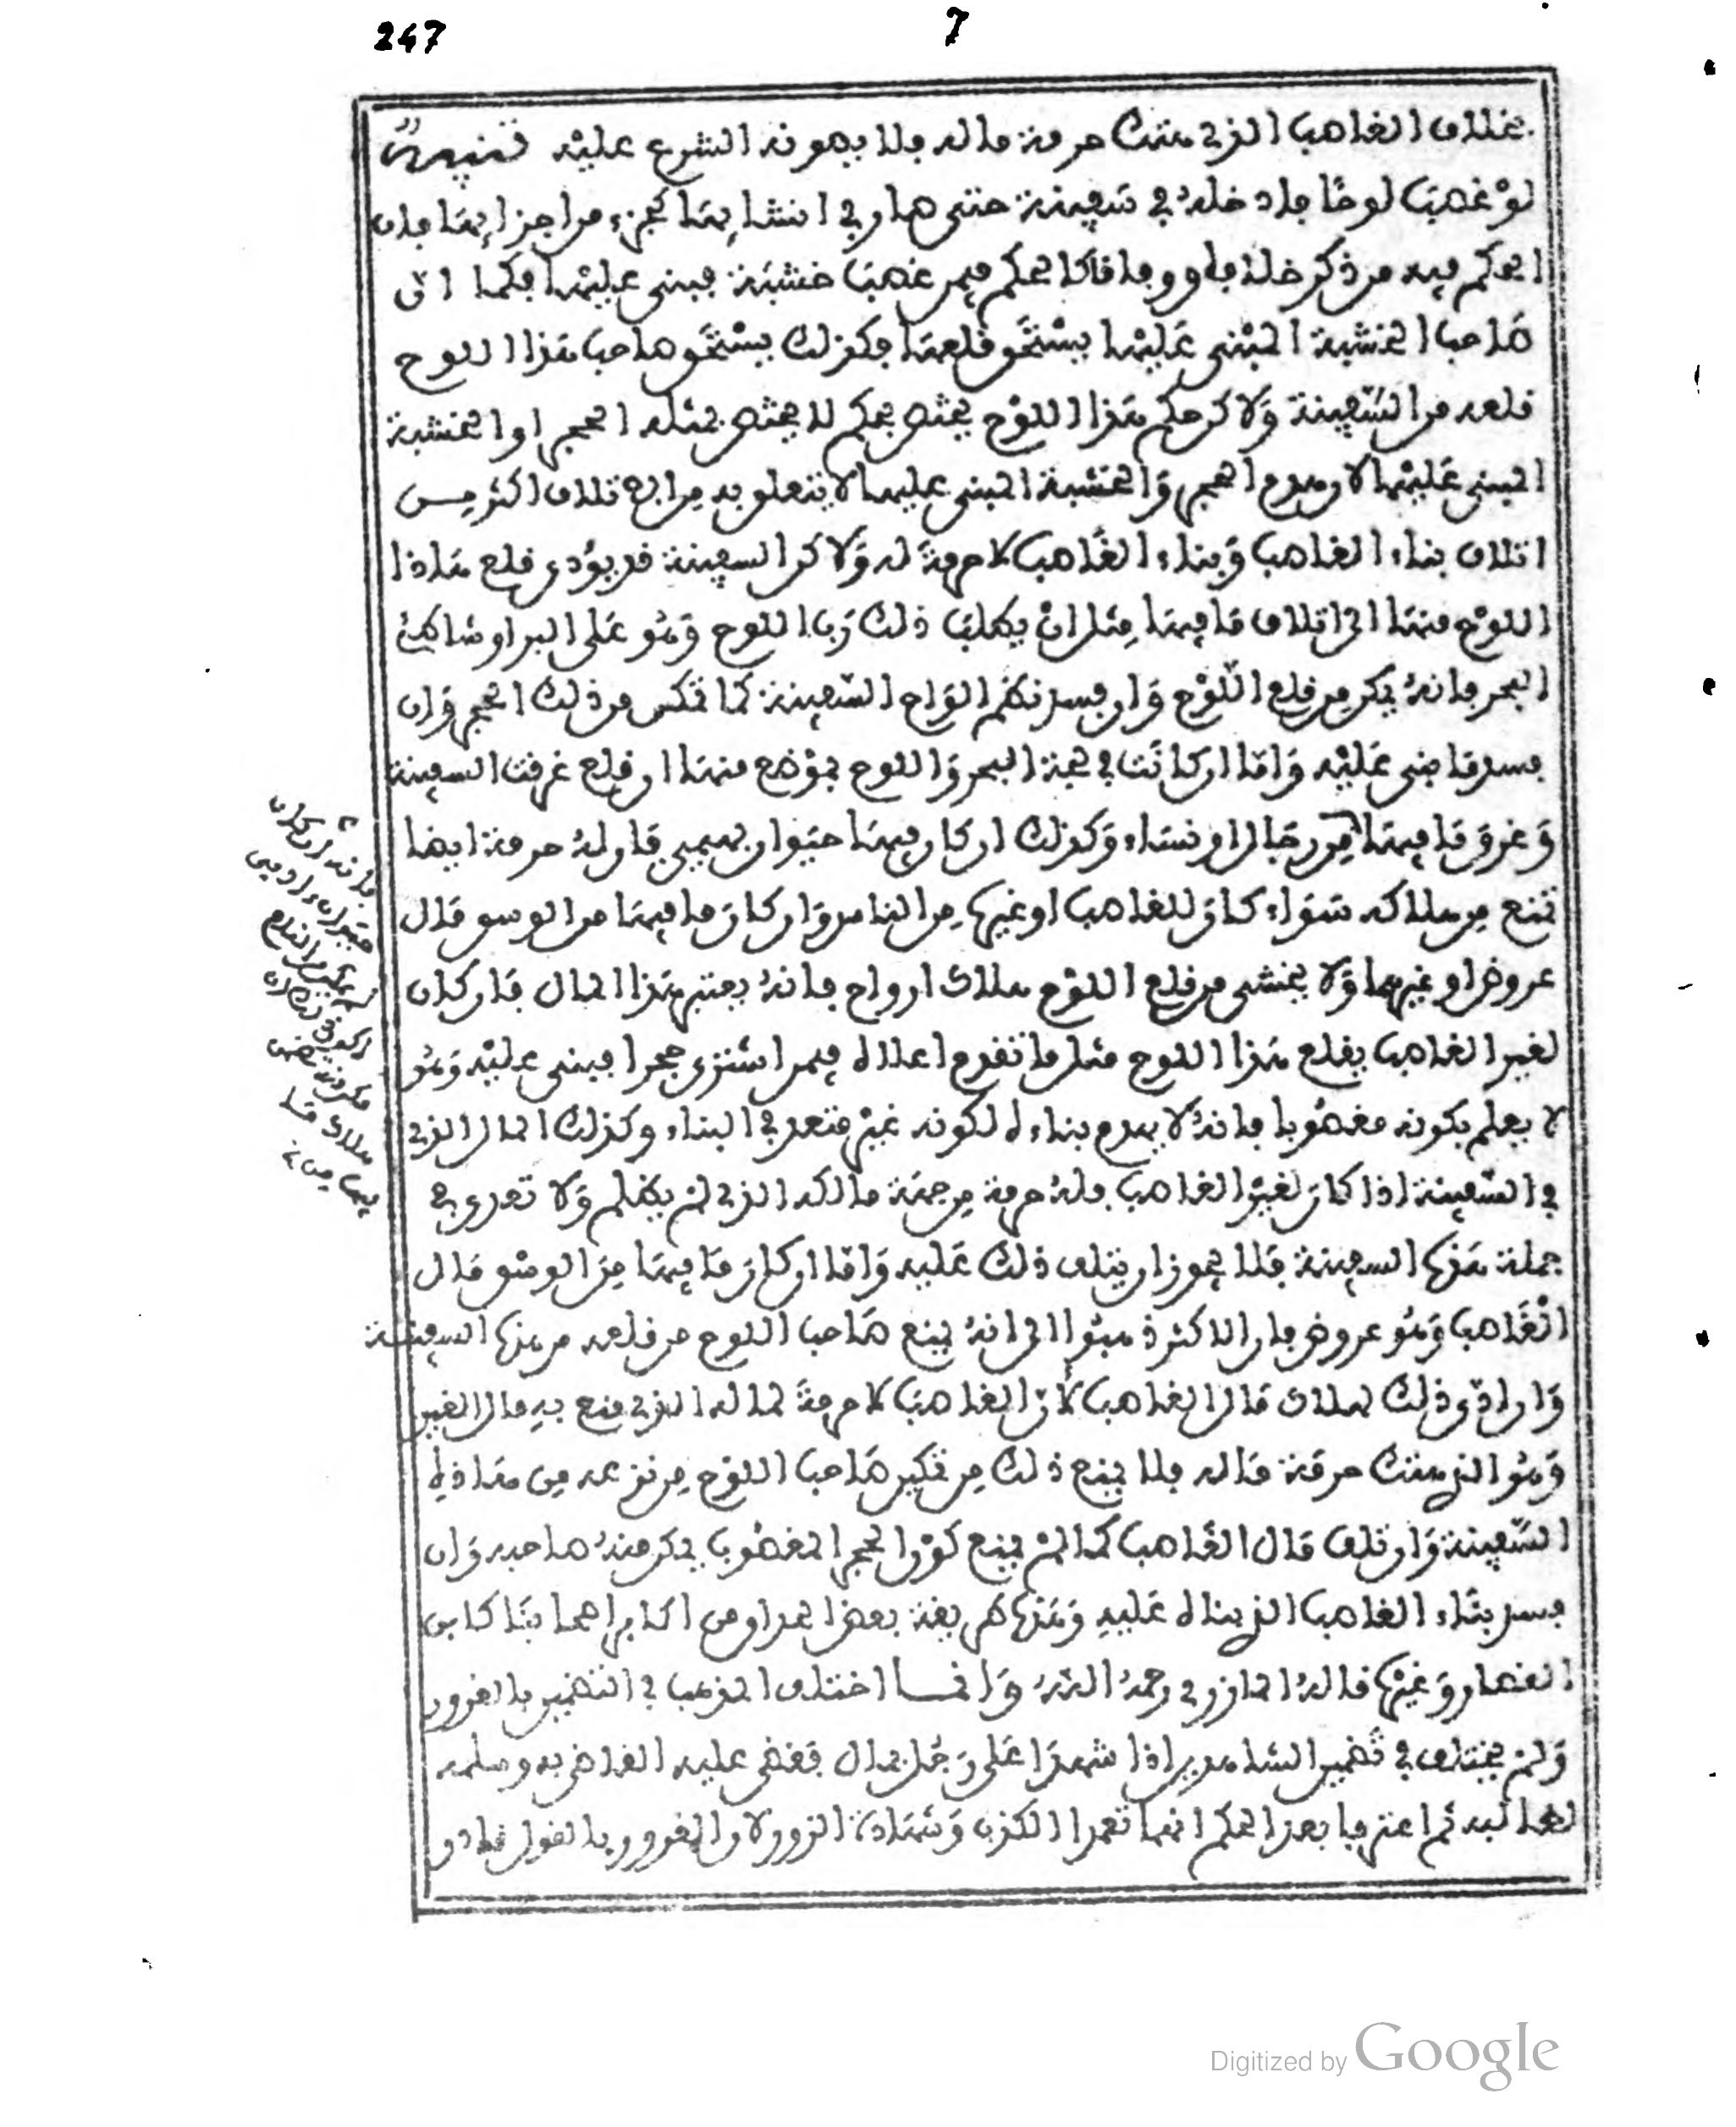 247 7
بخلاف الغاصب الذي هتك حرمة ماله فلا يصونه الشرع عليه تنبيه
لو غصب لوحا فادخله في سفينة حتى صار في انشائها كجزء من اجزائها فان
الحكم فيه من ذكر خلاف او وفاق كالحكم فيمن غصب خشبة فبنى عليها فكما ان
صاحب الخشبة المبني عليها يستحق قلعها فكذلك يستحق صاحب هذا اللوح
قلعه من السفينة ولاكن حكم هذا اللوح يختص بحكم لا يختص بمثله الحجر او الخشبة
المبني عليها لان هدم الحجر والخشبة المبني عليها لا يتعلق به من اتلاف اكثر من
اتلاف بناء الغاصب وبناء الغاصب لا حرمة له ولاكن السفينة قد يؤدي قلع هاذا
اللوح منها الى اتلاف ما فيها مثل ان يطلب ذلك رب اللوح وهو على البر او شاطئ
البحر فانه يمكن من قلع اللوح وان فسد نظم الواح السفينة كما تمكن من ذلك الحجر وان
فسد ما بني عليه واما ان كانت في لجة البحر واللوح بموضع منها ان قلع غرقت السفينة
وغرق ما فيها من رجال او نساء وكذلك ان كان فيها حيوان بهيمي فان له حرمة ايضا
تمنع من هلاكه سواء كان للغاصب او غيره من الناس وان كان ما فيها من الوسق مال
عروض او غيرها ولا يخشى من قلع اللوح هلاك ارواح فانه يعتبر هذا المال فان كان
لغير الغاصب يقلع هذا اللوح مثل ما تقدم اعلاه فيمن اشترى حجرا فبنى عليه وهو
لا يعلم بكونه مغصوبا فانه لا يهدم بناءه لكونه غير متعد في البناء وكذلك المال الذي
في السفينة اذا كان لغير الغاصب فله حرمة من جهة مالكه الذي لم يظلم ولا تعدى في
جملة هذه السفينة فلا يجوز ان يتلف ذلك عليه واما ان كان ما فيها من الوسق مال
الغاصب وهو عروض فان الاكثر ذهبوا الى انه يمنع صاحب اللوح من قلعه من هذه السفينة
وان ادى ذلك لهلاك مال الغاصب لان الغاصب لا حرمة لماله الذي منع به مال الغير
وهو الذي هتك حرمة ماله فلا يمنع ذلك من تمكين صاحب اللوح من نزعه من هاذه
السفينة وان تلف مال الغاصب كما لم يمنع كون الحجر المغصوب يمكن منه صاحبه وان
فسد بناء الغاصب الذي بناه عليه وهذه طريقة بعض الحذاق من اكابر اصحابنا كابن
القصار وغيره قاله المازري رحمه الله وانما اختلف المذهب في التضمين بالغرور
ولم يختلف في تضمين الشاهدين اذا شهدا على رجل بمال فقضى عليه القاضي به وسلمه
لطالبه ثم اعترفا بعد الحكم انهما تعمدا الكذب وشهادة الزور لان الغرور بالقول
فانه ان كان